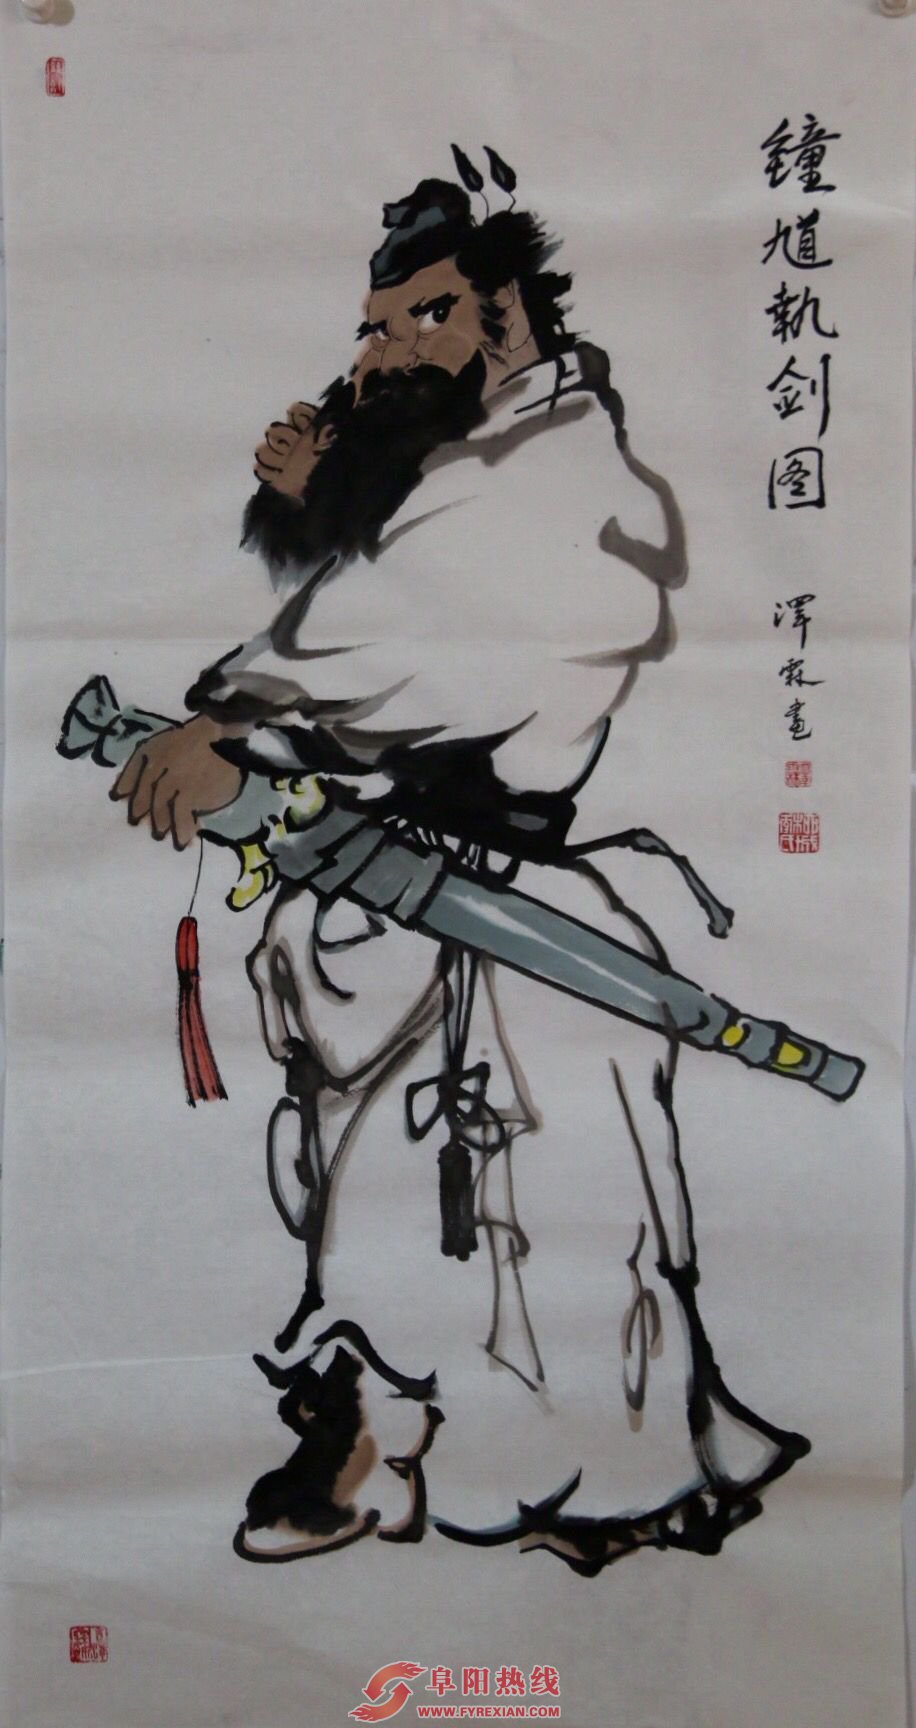 鐘馗執剑图
澤霖畫
阜阳热线
WWW.FYREXIAN.COM